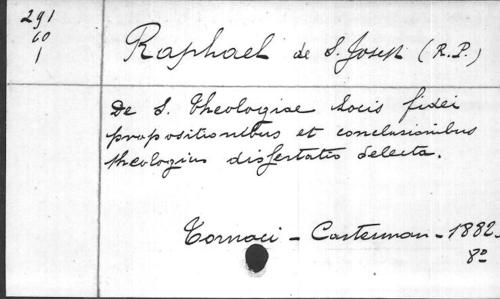 291
60
1
Raphael de S. Joseph (R.P.)
De S. Theologiae locis fidei
propositionibus et conclusionibus
theologicis dissertatio selecta.
Tornaci - Casterman - 1882.
8°